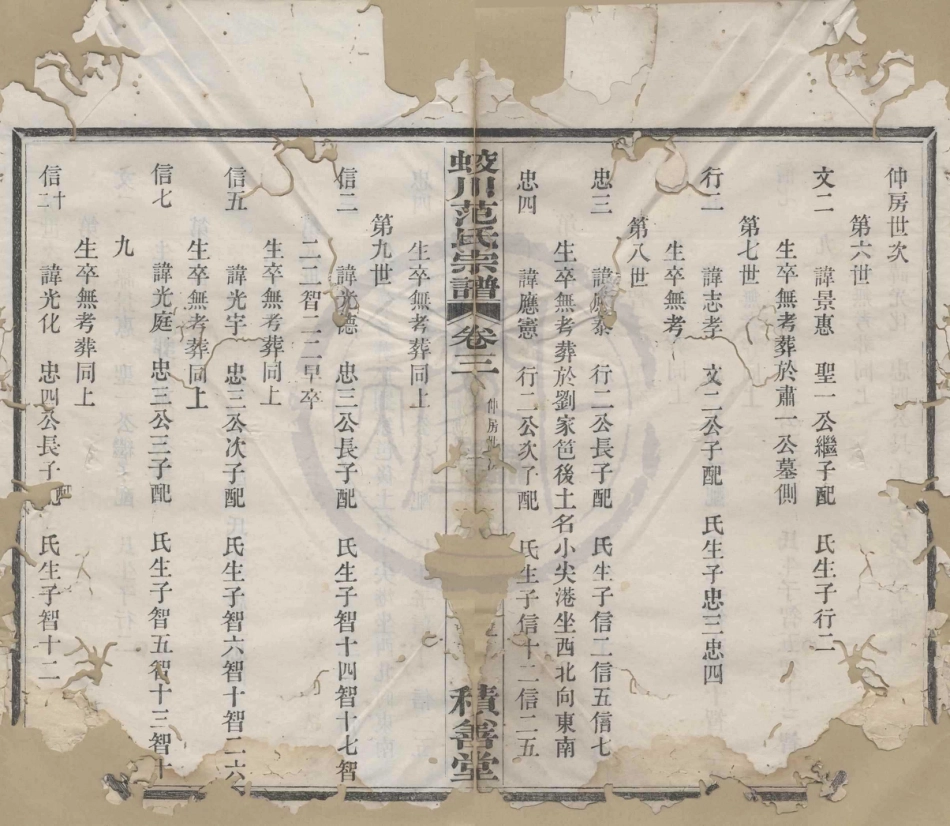 仲房世次
第六世
文二 諱景惠 聖一公繼子配 氏生子行二
生卒無考葬於肅一公墓側
第七世
行二 諱志孝 文二公子配 氏生子忠三忠四
生卒無考
第八世
忠三 諱應泰 行二公長子配 氏生子信二信五信七
生卒無考葬於劉家笆後土名小尖港坐西北向東南
忠四 諱應憲 行二公次子配 氏生子信十二信二五
蛟川范氏宗譜 卷三 仲房世 積善堂
生卒無考葬同上
第九世
信二 諱光德 忠三公長子配 氏生子智十四智十七智
二三智二二早卒
生卒無考葬同上
信五 諱光宇 忠三公次子配 氏生子智六智十智二六
生卒無考葬同上
信七 諱光庭 忠三公三子配 氏生子智五智十三智十
九
生卒無考葬同上
信十二 諱光化 忠四公長子配 氏生子智十二